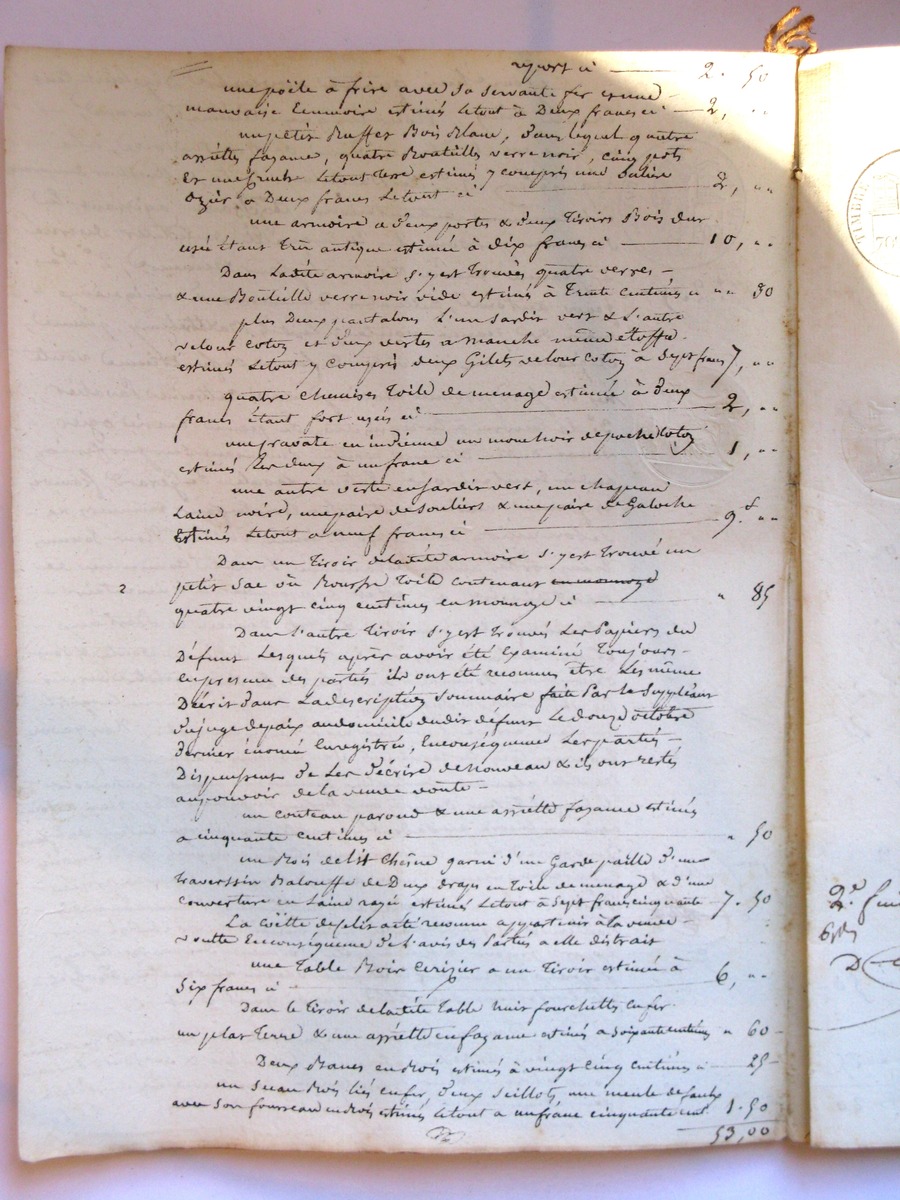 report ci — 2. 50
une poële à frire avec sa servante fer et une
mauvaise Ecumoire estimés le tout à Deux francs ci — 2, ""
un petit Buffet Bois Blanc, Dans lequel quatre
assiettes fayance, quatre Bouteilles verre noir, cinq pots
et une cruche le tout terre estimés y compris une
ozier à Deux francs le tout ci — 2, ""
une armoire a Deux portes & Deux Tiroirs Bois Dur
usée étant Très antique estimée à Dix francs ci — 10, ""
Dans Ladite armoire s'y est Trouvés quatre verres —
& une Bouteille verre noir vide estimés à Trente centimes ci "" 30
plus Deux pantalons L'un Sardir vert & L'autre
velour coton et Deux vestes a manche même etoffe
estimés Le tout y compris deux Gilets velour coton à Sept francs 7, ""
quatre chemises Toile de menage estimée à Deux
francs étant fort usées ci — 2, ""
une cravate en indienne un mouchoir de poche coton
estimés les deux à un franc ci — 1, ""
une autre veste en Sardir vert, un chapeau
Laine noire, une paire de souliers & une paire de Galoche
Estimés Le tout a neuf francs ci — 9.f ""
Dans un Tiroir de ladite armoire s'y est trouvé un
2 petit Sac ou Boursse Toile contenant en monnoye
quatre vingt cinq centimes en monnoye ci — " 85
Dans l'autre Tiroir s'y est Trouvés Les Papiers du
Défunt Lesquels après avoir été Examiné Toujours —
en presence des parties ils ont été reconnus être Les même
Décrit dans La description sommaire faite Par le Suppléant
Du juge de paix au domicile dudit défunt Le douze octobre
Dernier Enregistrée, En conséquence Les parties —
Dispensent De Les Décrire de Nouveau & ils ont restés
au pouvoir de la veuve
un couteau & une assiette fayance estimés
a cinquante centimes ci — " 50
un Bois de lit chêne garni d'un Garde paille d'un
Traverssin Balouffe de Deux draps en Toile de menage & d'une
couverture en Laine rayée estimés Le tout à Sept francs cinquante — 7. 50
La Coëtte du lit a été reconnue appartenir à la veuve —
En conséquence De L'avis des Parties a elle distrait
une Table Bois Cerizier a un Tiroir estimée à
Six francs ci — 6, ""
Dans le Tiroir de ladite Table huit fourchettes en fer
un plat Terre & une assiette en fayance estimés a soixante centimes " 60 —
Deux Bancs en Bois estimés à vingt cinq centimes ci — 25 —
un Seau Bois liés en fer, Deux Seillots, une meule de faulx
avec son fousseau en bois estimés Le tout a un franc cinquante cent. 1. 50
53,00
TIMBRE
70
2.e
D